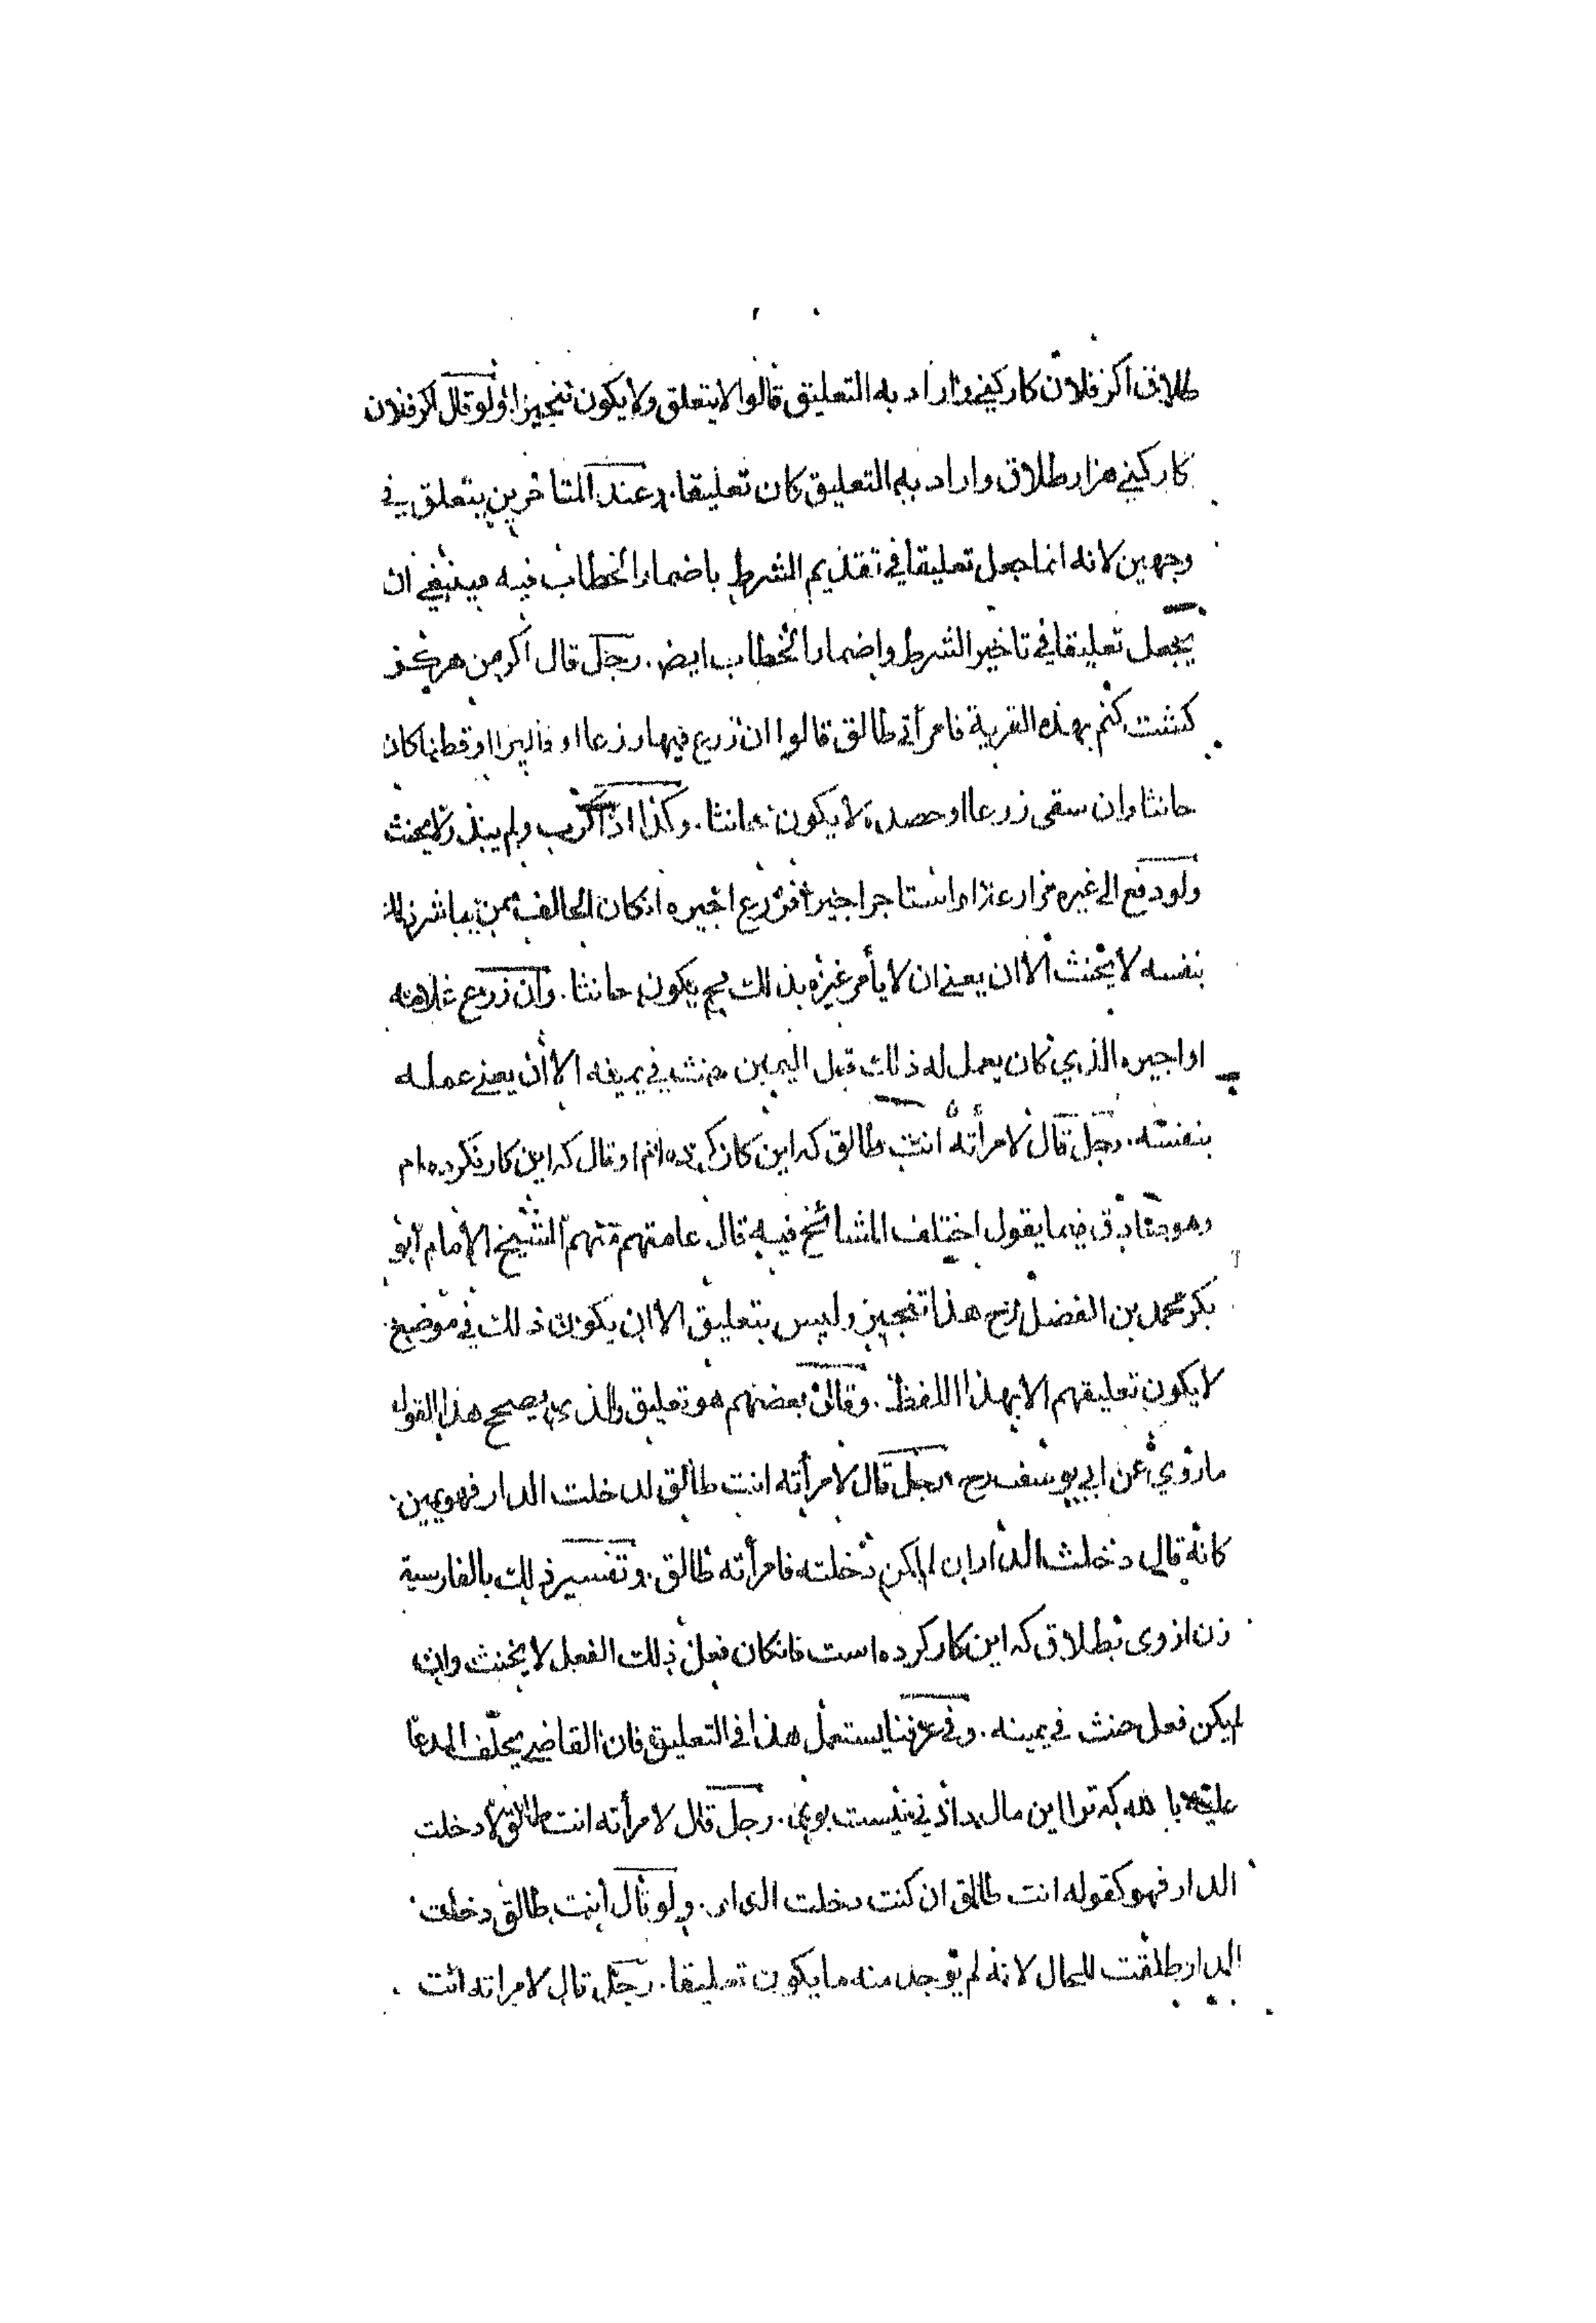 طلاق اكر فلان كار كني واراد به التعليق قالوا لا يتعلق ولا يكون تنجيزا. ولو قال اكر فلان
كار كني هزار طلاق واراد به التعليق كان تعليقا. وعند المتاخرين يتعلق في
وجهين لانه انما جعل تعليقا في تقديم الشرط باضمار الخطاب فيه فينبغي ان
يجعل تعليقا في تاخير الشرط واضمار الخطاب ايض. رجل قال اكر من هركز
كشت كنم بهذه القرية فامرأتي طالق قالوا ان زرع فيها زرعا او فاليزا او قطنا كان
حانثا وان سقى زرعا او حصده لا يكون حانثا. وكذا اذا كرب ولم يبذر لا يحنث
ولو دفع الى غيره مزارعة او استاجر اجيرا فزرع اجيره ان كان الحالف ممن يباشر ذلك
بنفسه لا يحنث الا ان يعني ان لا يأمر غيره بذلك فح يكون حانثا. وان زرع غلامه
او اجيره الذي كان يعمل له ذلك قبل اليمين حنث في يمينه الا ان يعني عمله
بنفسه. رجل قال لامرأته انت طالق كه اين كار كرده ام او قال كه اين كار نكرده ام
وهو صادق فيما يقول اختلف المشائخ فيه قال عامتهم منهم الشيخ الامام ابو
بكر محمد بن الفضل رح هذا تنجيز وليس بتعليق الا ان يكون ذلك في موضع
لا يكون تعليقهم الا بهذا اللفظ. وقال بعضهم هو تعليق والذي يصحح هذا القول
ما روي عن ابي يوسف رح. رجل قال لامرأته انت طالق لدخلت الدار فهو يمين
كانه قال دخلت الدار ان لم اكن دخلته فامرأته طالق. وتفسير ذلك بالفارسية
زن از وى بطلاق كه اين كار كرده است فان كان فعل ذلك الفعل لا يحنث وان
لم يكن فعل حنث في يمينه. وفي عرفنا يستعمل هذا في التعليق فان القاضي يحلف المدعا
عليه بالله كه ترا اين مال دادني نيست بوي. رجل قال لامرأته انت طالق لا دخلت
الدار فهو كقوله انت طالق ان كنت دخلت الدار. ولو قال انت طالق دخلت
الدار طلقت للحال لانه لم يوجد منه ما يكون تعليقا. رجل قال لامراته انت